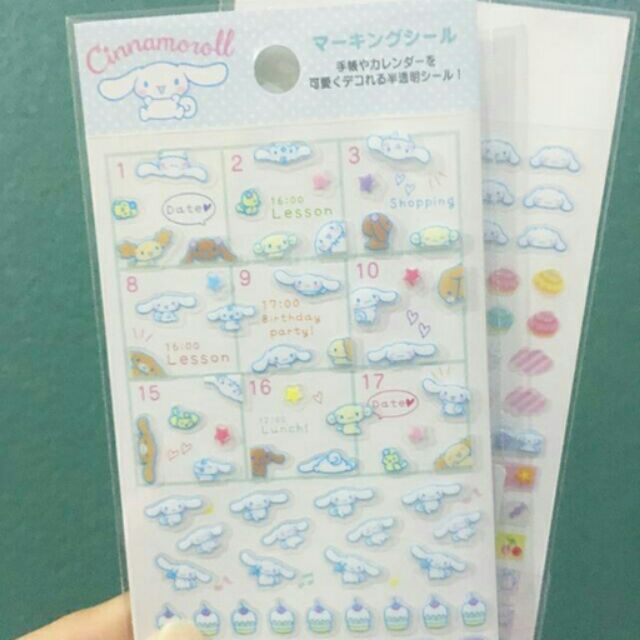 Cinnamoroll
マーキングシール
手帳やカレンダーを
可愛くデコれる半透明シール！
1
2
3
Date♥
16:00
Lesson
Shopping
8
9
10
17:00
Birthday
party!
16:00
Lesson
15
16
17
12:00
Lunch!
Date♥